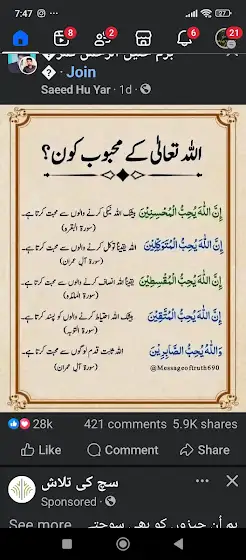 7:47
8
2
6
21
Join
Saeed Hu Yar · 1d
اللہ تعالیٰ کے محبوب کون؟
إِنَّ اللّٰهَ يُحِبُّ الْمُحْسِنِيْنَ
بیشک اللہ نیکی کرنے والوں سے محبت کرتا ہے۔
(سورۃ البقرہ)
إِنَّ اللّٰهَ يُحِبُّ الْمُتَوَكِّلِيْنَ
اللہ یقیناً توکل کرنے والوں سے محبت کرتا ہے۔
(سورۃ آل عمران)
إِنَّ اللّٰهَ يُحِبُّ الْمُقْسِطِيْنَ
یقیناً اللہ انصاف کرنے والوں سے محبت کرتا ہے۔
(سورۃ المائدہ)
إِنَّ اللّٰهَ يُحِبُّ الْمُتَّقِيْنَ
بیشک اللہ احتیاط کرنے والوں کو پسند کرتا ہے۔
(سورۃ التوبہ)
وَاللّٰهُ يُحِبُّ الصَّابِرِيْنَ
اللہ ثابت قدم لوگوں سے محبت کرتا ہے۔
(سورۃ آل عمران)
@Messageoftruth690
28k
421 comments
5.9K shares
Like
Comment
Share
سچ کی تلاش
Sponsored
See more
ہم اُن چیزوں کو بھی سوچتے